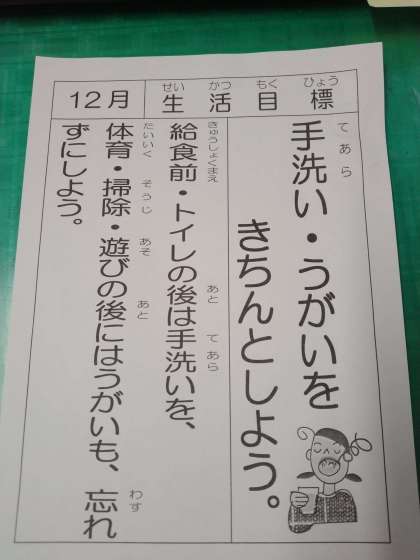 12月
生活目標
せいかつもくひょう
手洗い・うがいを
てあら
きちんとしよう。
給食前・トイレの後は手洗いを、
きゅうしょくまえ あと てあら
体育・掃除・遊びの後にはうがいも、忘れ
たいいく そうじ あそ あと わす
ずにしよう。